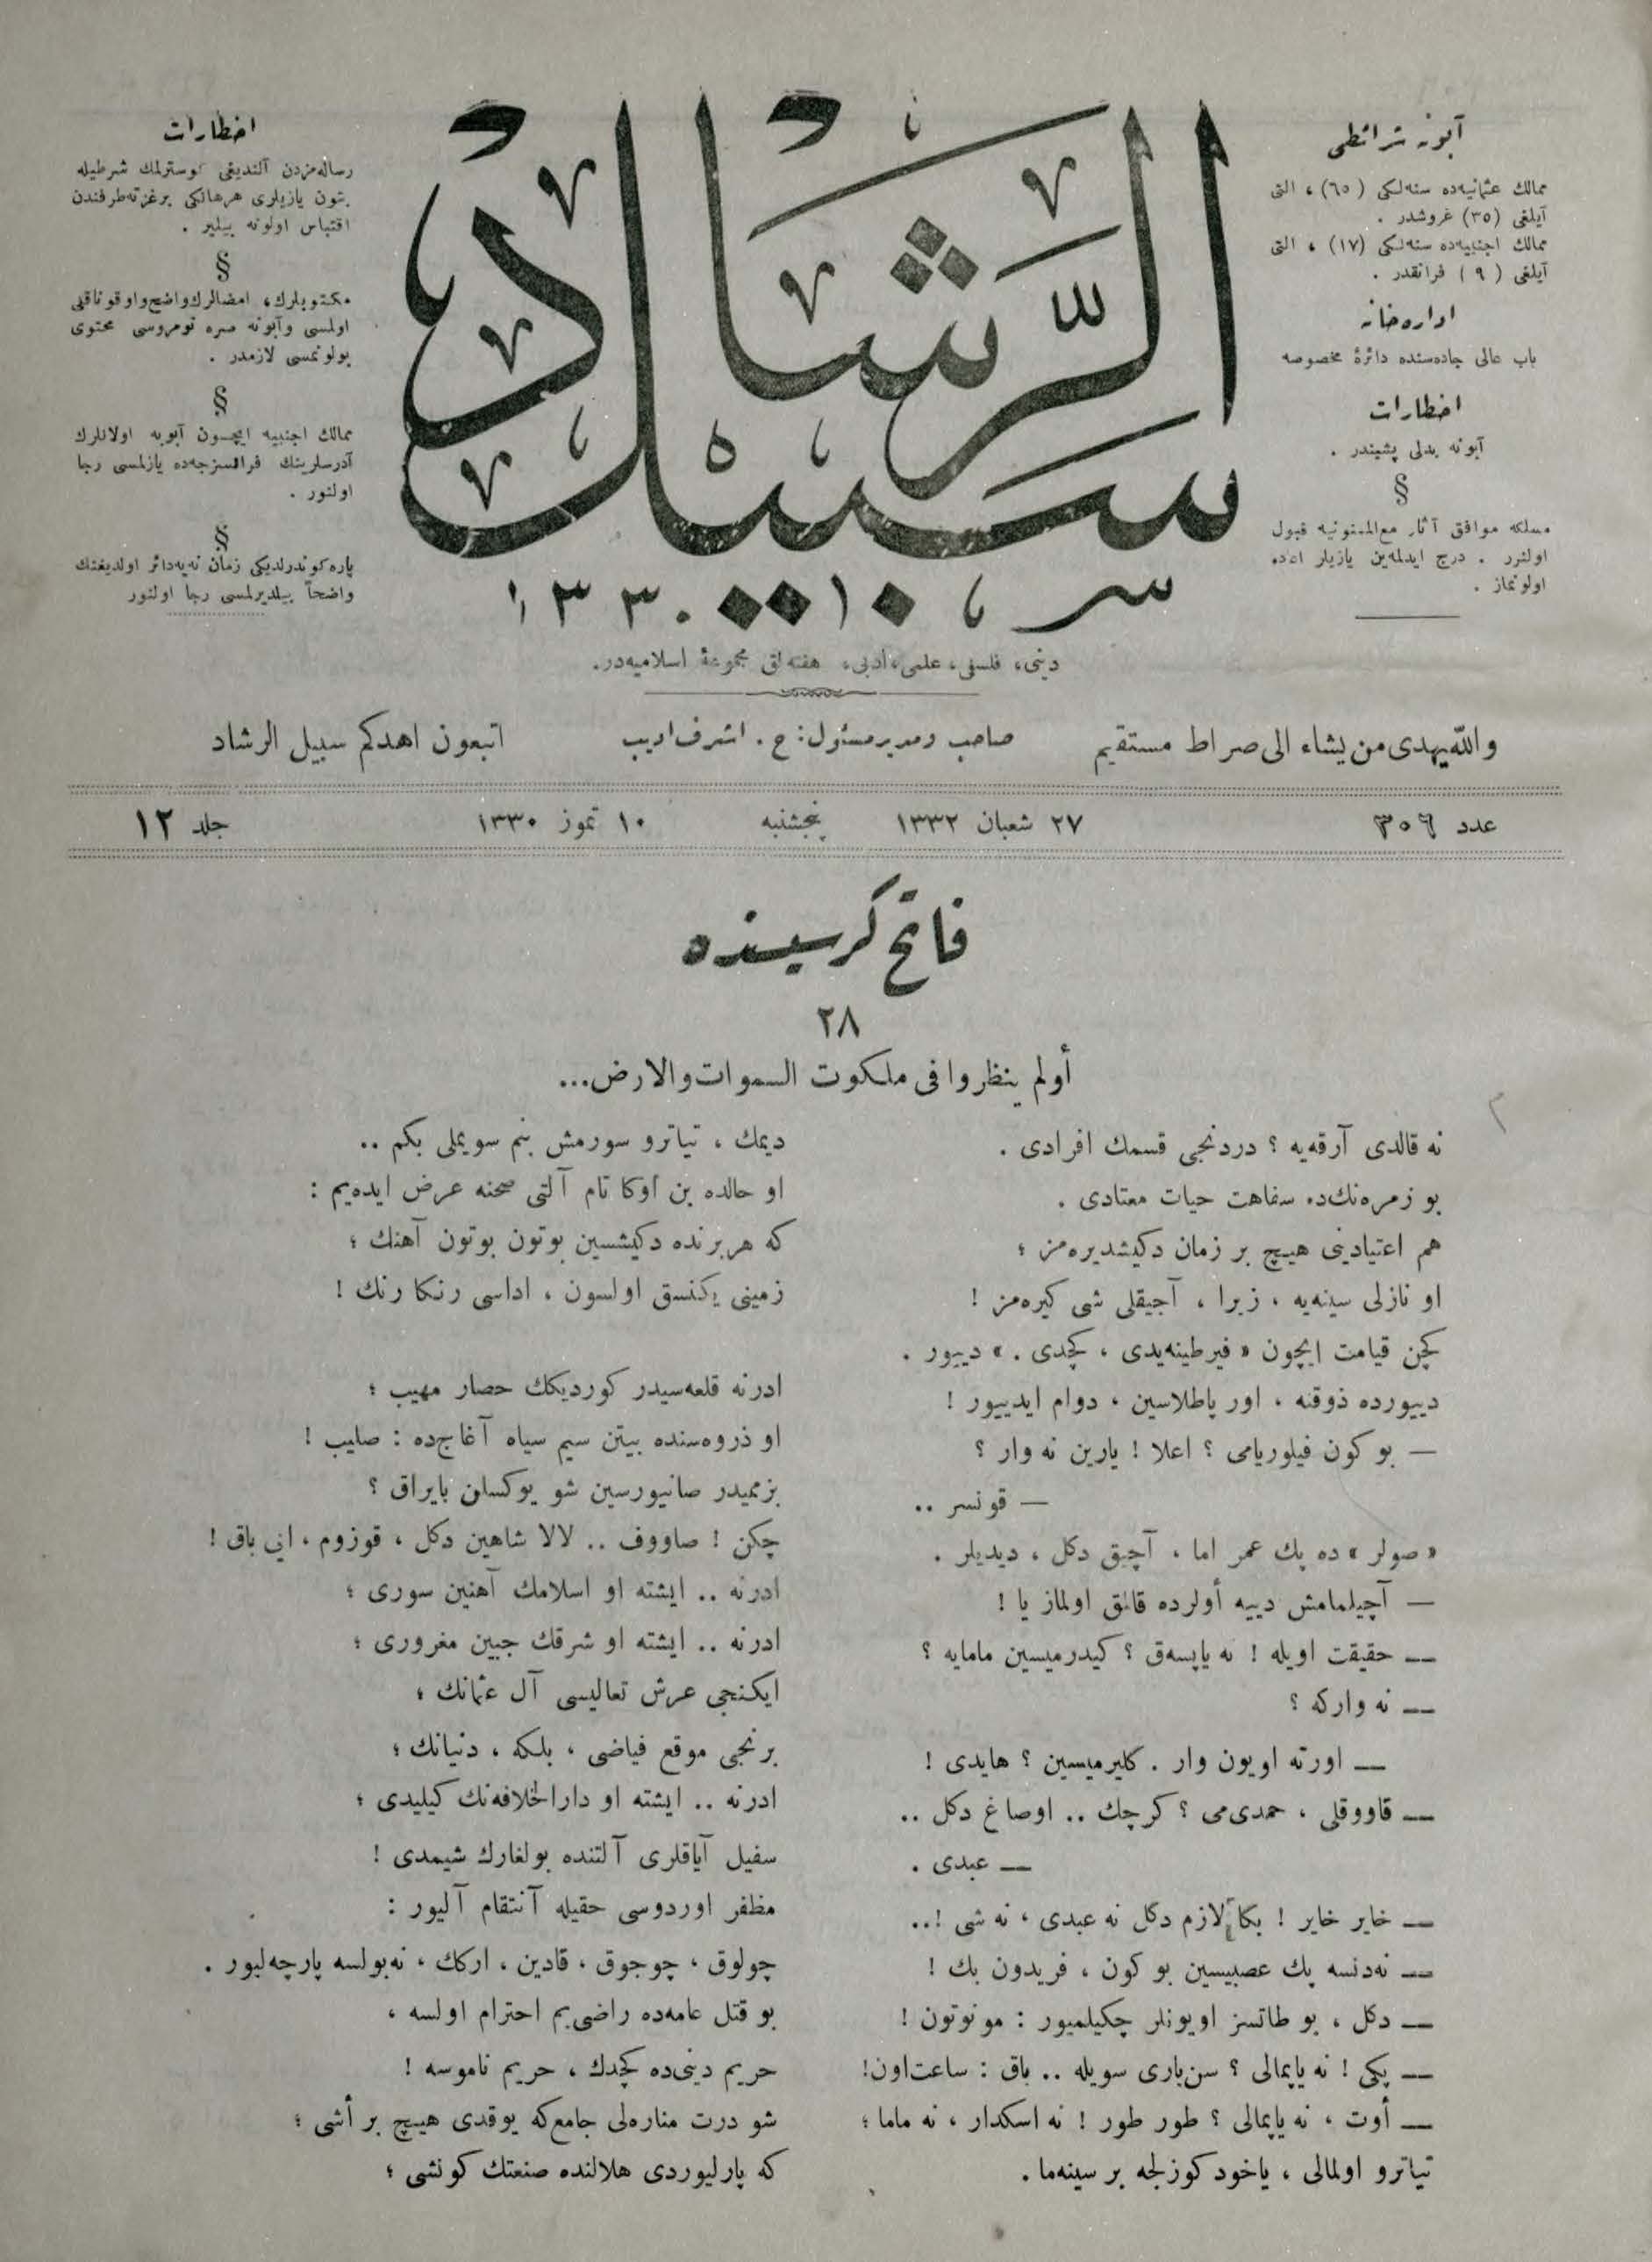 آبونه شرائطی
ممالك عثمانیه‌ده سنه‌لكی (٦٥) ، التی
آیلغی (٣٥) غروشدر .
ممالك اجنبیه‌ده سنه‌لكی (١٧) ، التی
آیلغی ( ٩ ) فرانقدر .
اداره‌خانه
باب عالی جاده‌سنده دائرۀ مخصوصه
اخطارات
آبونه بدلی پشیندر .
§
مسلكه موافق آثار مع‌الممنونیه قبول
اولنور . درج ایدلمه‌ین یازیلر اعاده
اولونماز .
سبيل الرّشاد
سر ١٣٣٠
اخطارات
رساله‌مزدن آلندیغی كوسترلمك شرطیله
بتون یازیلری هرهانكی برغزته‌طرفندن
اقتباس اولونه بیلیر .
§
مكتوبلرك، امضالرك‌واضح‌واوقوناقلی
اولمسی وآبونه صره نومروسی محتوی
بولونمسی لازمدر .
§
ممالك اجنبیه ایچون آبونه اولانلرك
آدرسلرینك فرانسزجه‌ده یازلمسی رجا
اولنور .
§
پاره‌كوندرلدیكی زمان نه‌یه‌دائر اولدیغنك
واضحاً بیلدیرلمسی رجا اولنور
دینی، فلسفی، علمی، ادبی، هفته‌لق مجموعۀ اسلامیه‌در.
والله‌یهدی‌من‌یشاء الی‌صراط مستقیم
صاحب ومدیرمسئول: ح . اشرف‌ادیب
اتبعون اهدكم سبیل الرشاد
عدد ٣٠٦
٢٧ شعبان ١٣٣٢
پنجشنبه
١٠ تموز ١٣٣٠
جلد ١٢
فاتح كرسیسنده
٢٨
أولم ینظروا فی ملكوت السموات والارض...
نه قالدی آرقه‌یه ؟ دردنجی قسمك افرادی .
بو زمره‌نك‌ده سفاهت حیات معتادی .
هم اعتیادینی هیچ بر زمان دكیشدیره‌مز ؛
او نازلی سینه‌یه ، زیرا ، آجیقلی شی كیره‌مز !
كچن قیامت ایچون « فیرطینه‌یدی ، كچدی . » دییور .
دییورده ذوقنه ، اور پاطلاسین ، دوام ایدییور !
— بو كون فیلوریامی ؟ اعلا ! یارین نه وار ؟
— قونسر ..
« صولر » ده پك عمر اما ، آچیق دكل ، دیدیلر .
— آچیلمامش دییه أولرده قالمق اولماز یا !
— حقیقت اویله ! نه یاپسه‌ق ؟ كیدرمیسین مامایه ؟
— نه واركه ؟
— اورته اویون وار . كلیرمیسین ؟ هایدی !
— قاووقلی ، حمدی‌می ؟ كرچك .. اوصاغ دكل ..
— عبدی .
— خایر خایر ! بكا لازم دكل نه عبدی ، نه شی !..
— نه‌دنسه پك عصبیسین بو كون ، فریدون بك !
— دكل ، بو طاتسز اویونلر چكیلمیور : مونوتون !
— پكی ! نه یاپمالی ؟ سن‌باری سویله .. باق : ساعت‌اون!
— أوت ، نه یاپمالی ؟ طور طور ! نه اسكدار ، نه ماما ؛
تیاترو اولمالی ، یاخود كوزلجه بر سینه‌ما .
دیمك ، تیاترو سورمش بنم سویملی بكم ..
او حالده بن أوكا تام آلتی صحنه عرض ایده‌یم :
كه هربرنده دكیشسین بوتون بوتون آهنك ؛
زمینی یكنسق اولسون ، اداسی رنكا رنك !
ادرنه قلعه‌سیدر كوردیكك حصار مهیب ؛
او ذروه‌سنده بیتن سیم سیاه آغاج‌ده : صلیب !
بزممیدر صانیورسین شو یوكسلن بایراق ؟
چكن ! صاووف .. لالا شاهین دكل ، قوزوم ، ایی باق !
ادرنه .. ایشته او اسلامك آهنین سوری ؛
ادرنه .. ایشته او شرقك جبین مغروری ؛
ایكنجی عرش تعالیسی آل عثمانك ؛
برنجی موقع فیاضی ، بلكه ، دنیانك ؛
ادرنه .. ایشته او دارالخلافه‌نك كیلیدی ؛
سفیل آیاقلری آلتنده بولغارك شیمدی !
مظفر اوردوسی حقیله آنتقام آلیور :
چولوق ، چوجوق ، قادین ، اركك ، نه‌بولسه پارچه‌لیور .
بو قتل عامه‌ده راضی‌یم احترام اولسه ،
حریم دینی‌ده كچدك ، حریم ناموسه !
شو درت مناره‌لی جامع‌كه یوقدی هیچ بر أشی ؛
كه پارلیوردی هلالنده صنعتك كونشی ؛